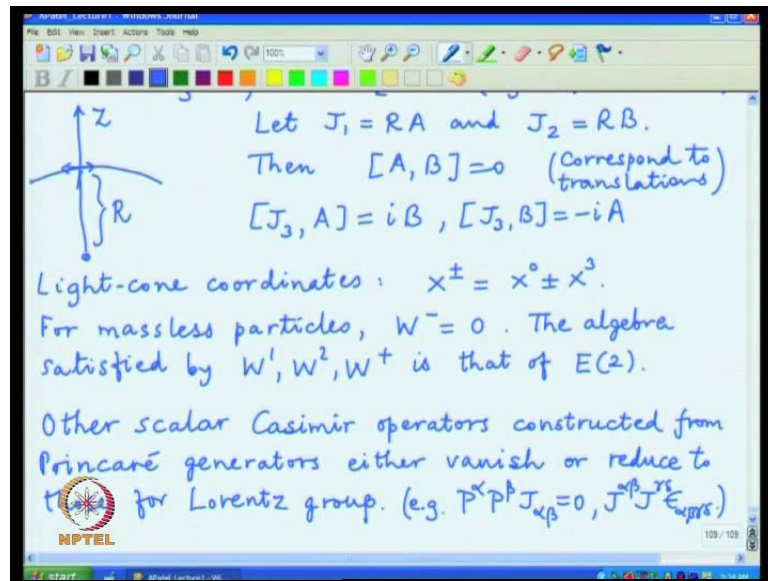 APatel_Lecture1 - Windows Journal
File Edit View Insert Actions Tools Help
100%
B I
Z
R
Let J₁ = RA and J₂ = RB.
Then [A, B] = 0 (Correspond to translations)
[J₃, A] = iB , [J₃, B] = -iA
Light-cone coordinates : x^± = x⁰ ± x³.
For massless particles, W⁻ = 0 . The algebra
satisfied by W¹, W², W⁺ is that of E(2).
Other scalar Casimir operators constructed from
Poincaré generators either vanish or reduce to
for Lorentz group. (e.g. P^α P^β J_αβ = 0, J^αβ J^γδ ε_αβγδ.)
NPTEL
109 / 109
start
APatel_Lecture1 - Wi...